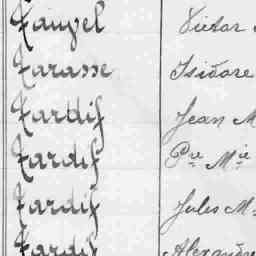 Taupel Victor
Tarasse Isidore
Tardif Jean M
Tardif Pre Mie
Tardif Jules M
Tardif Alexandre